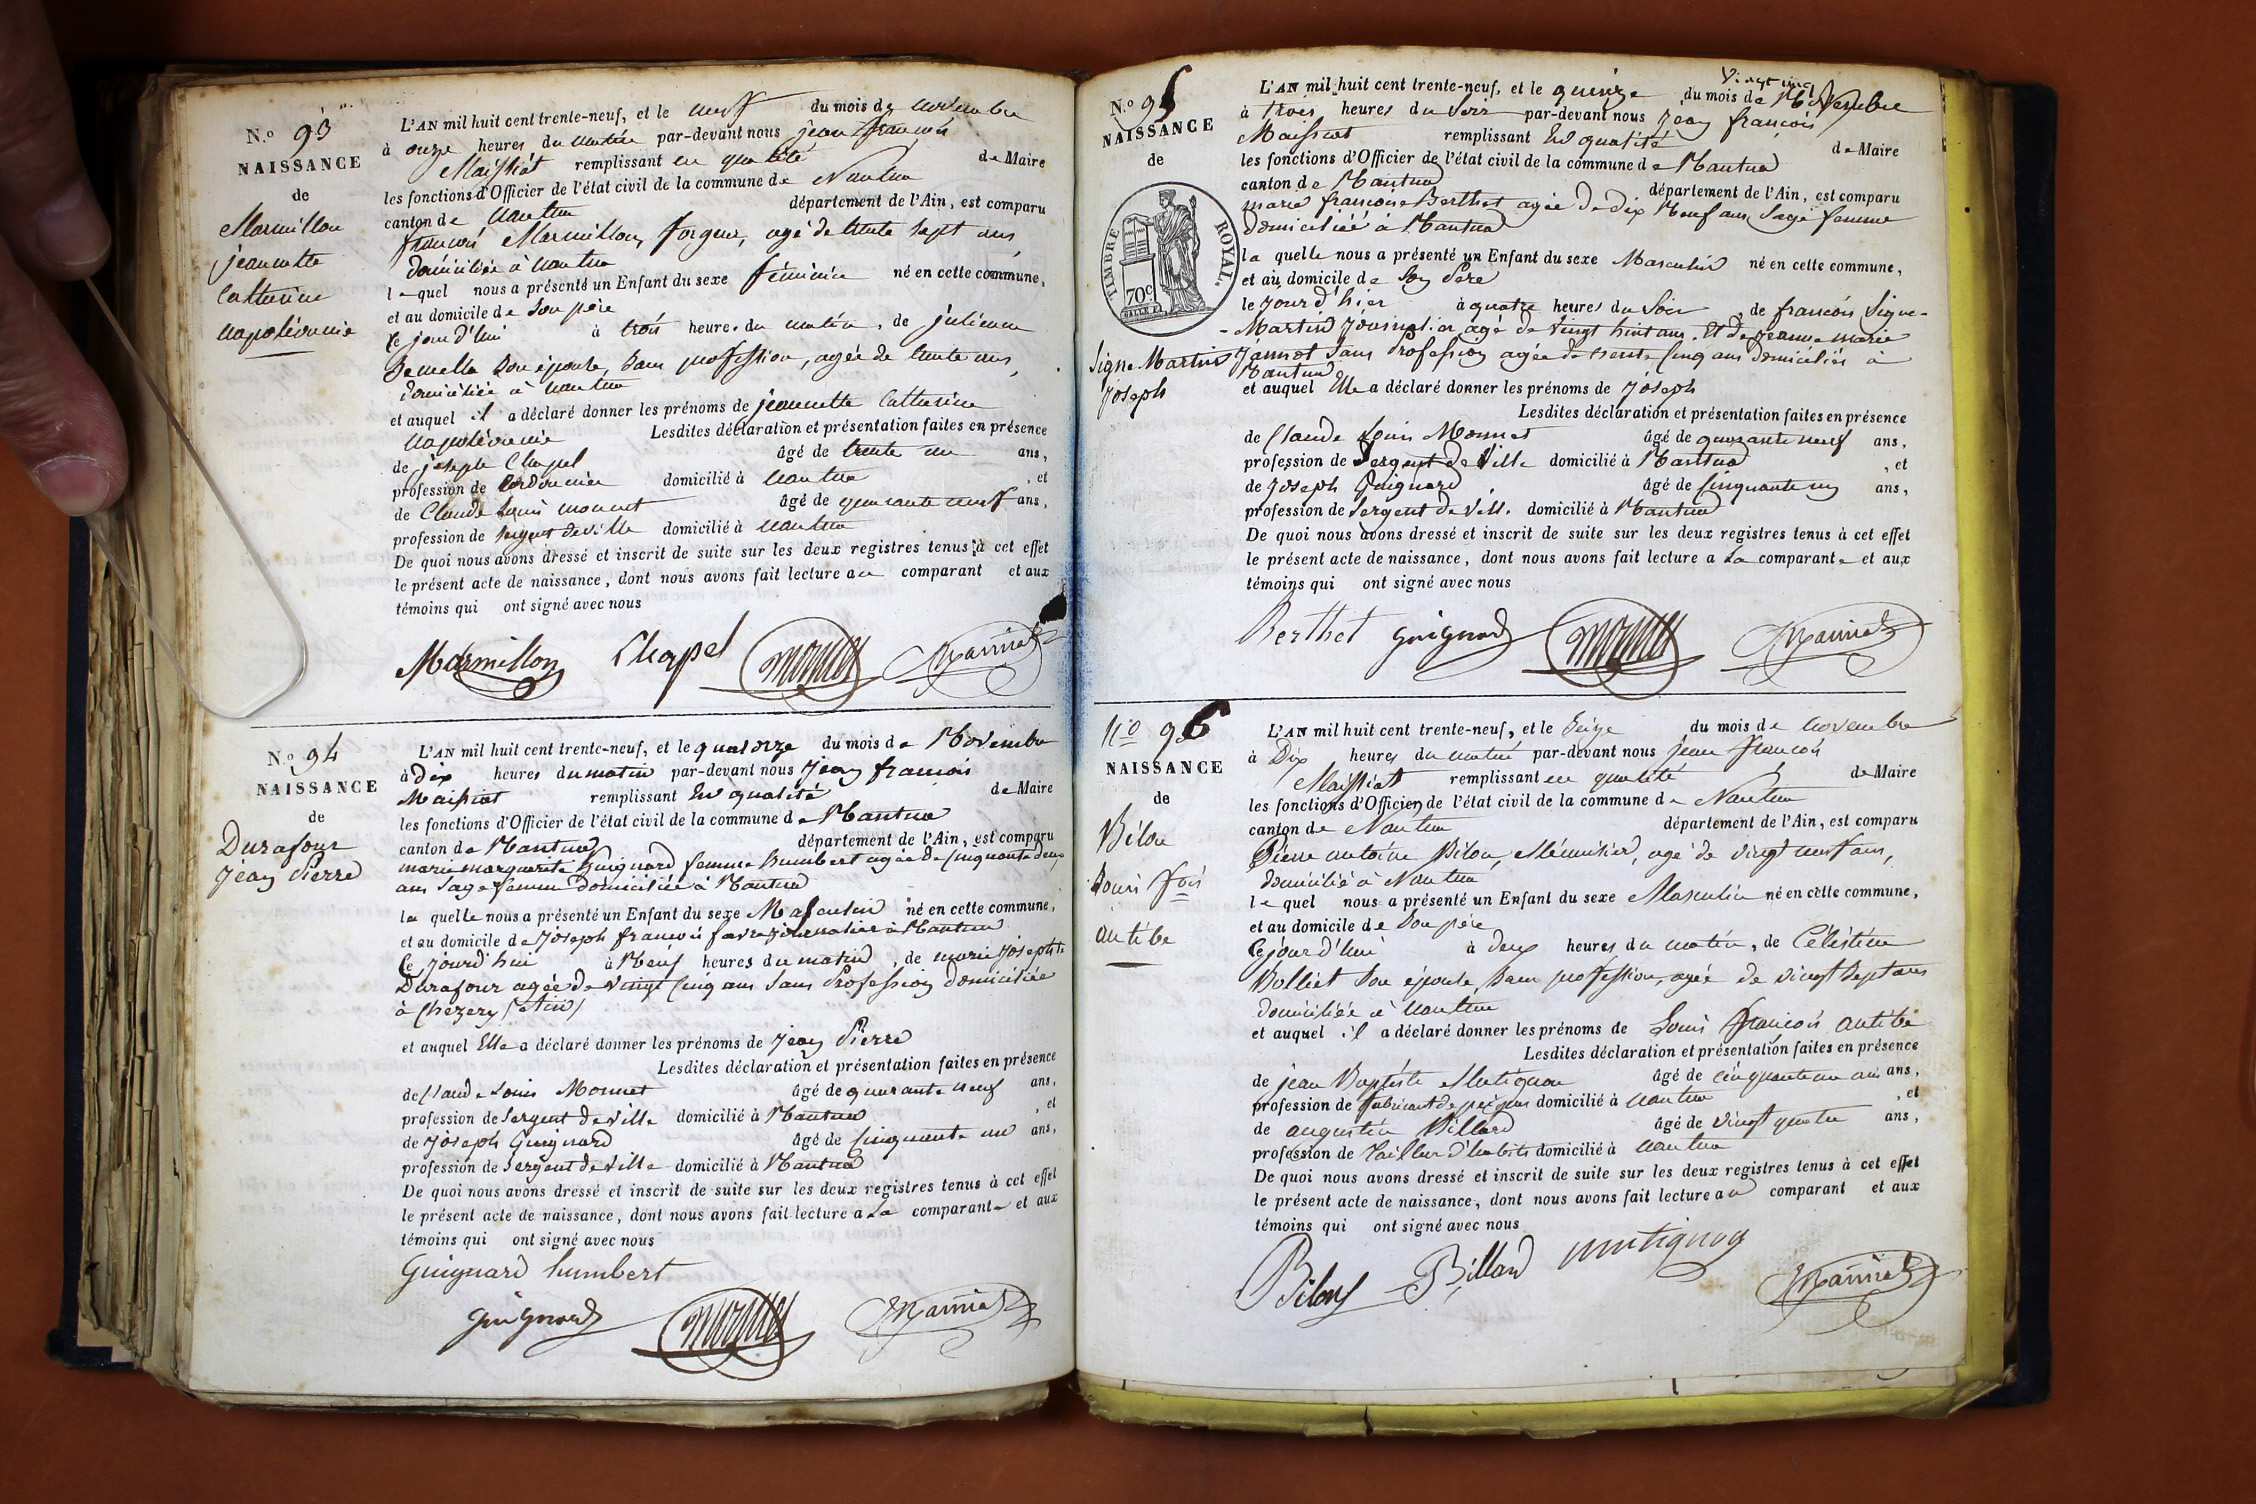 N.º 93
NAISSANCE
de
Marmillon
jeannette
Catherine
napoléonie
L'AN mil huit cent trente-neuf, et le neuf du mois de novembre
à onze heures du matin par-devant nous jean françois
Maissiat remplissant en qualité de Maire
les fonctions d'Officier de l'état civil de la commune de Nantua
canton de nantua département de l'Ain, est comparu
françois Marmillon, forgeur, agé de trente sept ans,
domicilié à nantua
lequel nous a présenté un Enfant du sexe féminin né en cette commune,
et au domicile de son père
ce jour d'hui à trois heures du matin, de julienne
son épouse, sans profession, agée de trente ans,
domiciliée à nantua
et auquel il a déclaré donner les prénoms de jeannette Catherine
napoléonie Lesdites déclaration et présentation faites en présence
de joseph Chapel âgé de trente un ans,
profession de Cordonnier domicilié à nantua, et
de Claude Louis monnet âgé de quarante neuf ans,
profession de sergent de ville domicilié à nantua
De quoi nous avons dressé et inscrit de suite sur les deux registres tenus à cet effet
le présent acte de naissance, dont nous avons fait lecture au comparant et aux
témoins qui ont signé avec nous
Marmillon Chapel monnet Maissiat
N.º 94
NAISSANCE
de
Durafour
jean Pierre
L'AN mil huit cent trente-neuf, et le quatorze du mois de Novembre
à Dix heures du matin par-devant nous jean francois
Maissiat remplissant En qualité de Maire
les fonctions d'Officier de l'état civil de la commune de Nantua
canton de Nantua département de l'Ain, est comparu
marie marguerite Guignard femme humbert agée de Cinquante deux
ans Sage femme domiciliée à Nantua
la quelle nous a présenté un Enfant du sexe Masculin né en cette commune,
et au domicile de joseph francois favre journalier à Nantua
Ce jourd'hui à Neuf heures du matin, de marie josephte
Durafour agée de vingt Cinq ans Sans Profession domiciliée
à Chézery (Ain)
et auquel Elle a déclaré donner les prénoms de jean Pierre
Lesdites déclaration et présentation faites en présence
de Claude Louis Monnet âgé de quarante neuf ans,
profession de Sergent de ville domicilié à Nantua, et
de joseph Guignard âgé de Cinquante un ans,
profession de Sergent de ville domicilié à Nantua
De quoi nous avons dressé et inscrit de suite sur les deux registres tenus à cet effet
le présent acte de naissance, dont nous avons fait lecture a La comparante et aux
témoins qui ont signé avec nous
Guignard humbert
guignard monnet Maissiat
N.º 95
NAISSANCE
de
TIMBRE ROYAL.
70c.
Signe-Martin
joseph
vingt cinq
L'AN mil huit cent trente-neuf, et le quinze du mois de Novembre
à trois heures du Soir par-devant nous jean françois
Maissiat remplissant En qualité de Maire
les fonctions d'Officier de l'état civil de la commune de Nantua
canton de Nantua département de l'Ain, est comparu
marie francoise Berthet agée de dix Neuf ans Sage femme
domiciliée à Nantua
la quelle nous a présenté un Enfant du sexe Masculin né en cette commune,
et au domicile de Son Père
le jour d'hier à quatre heures du Soir, de francois Signe-
-Martin journalier agé de vingt huit ans. Et de jeanne marie
jannet Sans Profession agée de trente Cinq ans domiciliés à
Nantua
et auquel Elle a déclaré donner les prénoms de joseph
Lesdites déclaration et présentation faites en présence
de Claude Louis Monnet âgé de quarante neuf ans,
profession de Sergent de Ville domicilié à Nantua, et
de joseph Guignard âgé de Cinquante un ans,
profession de Sergent de Ville domicilié à Nantua
De quoi nous avons dressé et inscrit de suite sur les deux registres tenus à cet effet
le présent acte de naissance, dont nous avons fait lecture a La comparante et aux
témoins qui ont signé avec nous
Berthet guignard monnet Maissiat
Nº 96
NAISSANCE
de
Bilon
Louis fois
antibe
L'AN mil huit cent trente-neuf, et le Seize du mois de novembre
à Dix heures du matin par-devant nous jean françois
Maissiat remplissant en qualité de Maire
les fonctions d'Officier de l'état civil de la commune de Nantua
canton de Nantua département de l'Ain, est comparu
Pierre antoine Bilon, Menuisier, agé de vingt neuf ans,
domicilié à Nantua
lequel nous a présenté un Enfant du sexe Masculin né en cette commune,
et au domicile de Son père
Ce jour d'hui à deux heures du matin, de Célestine
Bolliet Son épouse, Sans profession, agée de vingt Sept ans
domiciliée à nantua
et auquel il a déclaré donner les prénoms de Louis françois antibe
Lesdites déclaration et présentation faites en présence
de jean Baptiste Mutignon âgé de cinquante un ans ans,
profession de fabricant de peignes domicilié à nantua, et
de augustin Billard âgé de vingt quatre ans,
profession de tailleur d'habits domicilié à nantua
De quoi nous avons dressé et inscrit de suite sur les deux registres tenus à cet effet
le présent acte de naissance, dont nous avons fait lecture au comparant et aux
témoins qui ont signé avec nous
Bilon Billard mutignon Maissiat